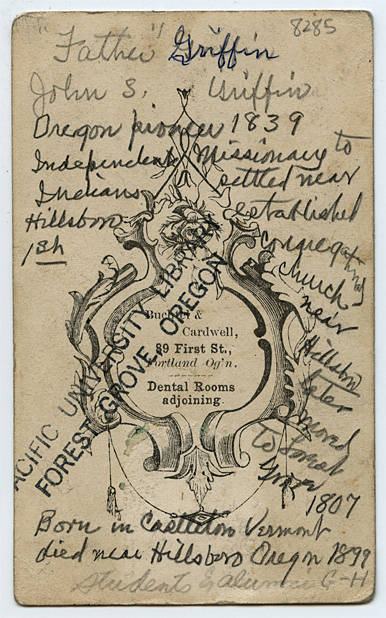 8285
"Father" Griffin
John S. Griffin
Oregon pioneer 1839
Independent Missionary to
Indians settled near
Hillsboro established
1st congregational
church
near
Hillsboro
later
moved
to Forest
Grove
PACIFIC UNIVERSITY LIBRARY
FOREST GROVE, OREGON
Buchtel &
Cardwell,
89 First St.,
Portland Og'n.
Dental Rooms
adjoining.
1807
Born in Castleton Vermont
died near Hillsboro Oregon 1899
Students & alumni G-H